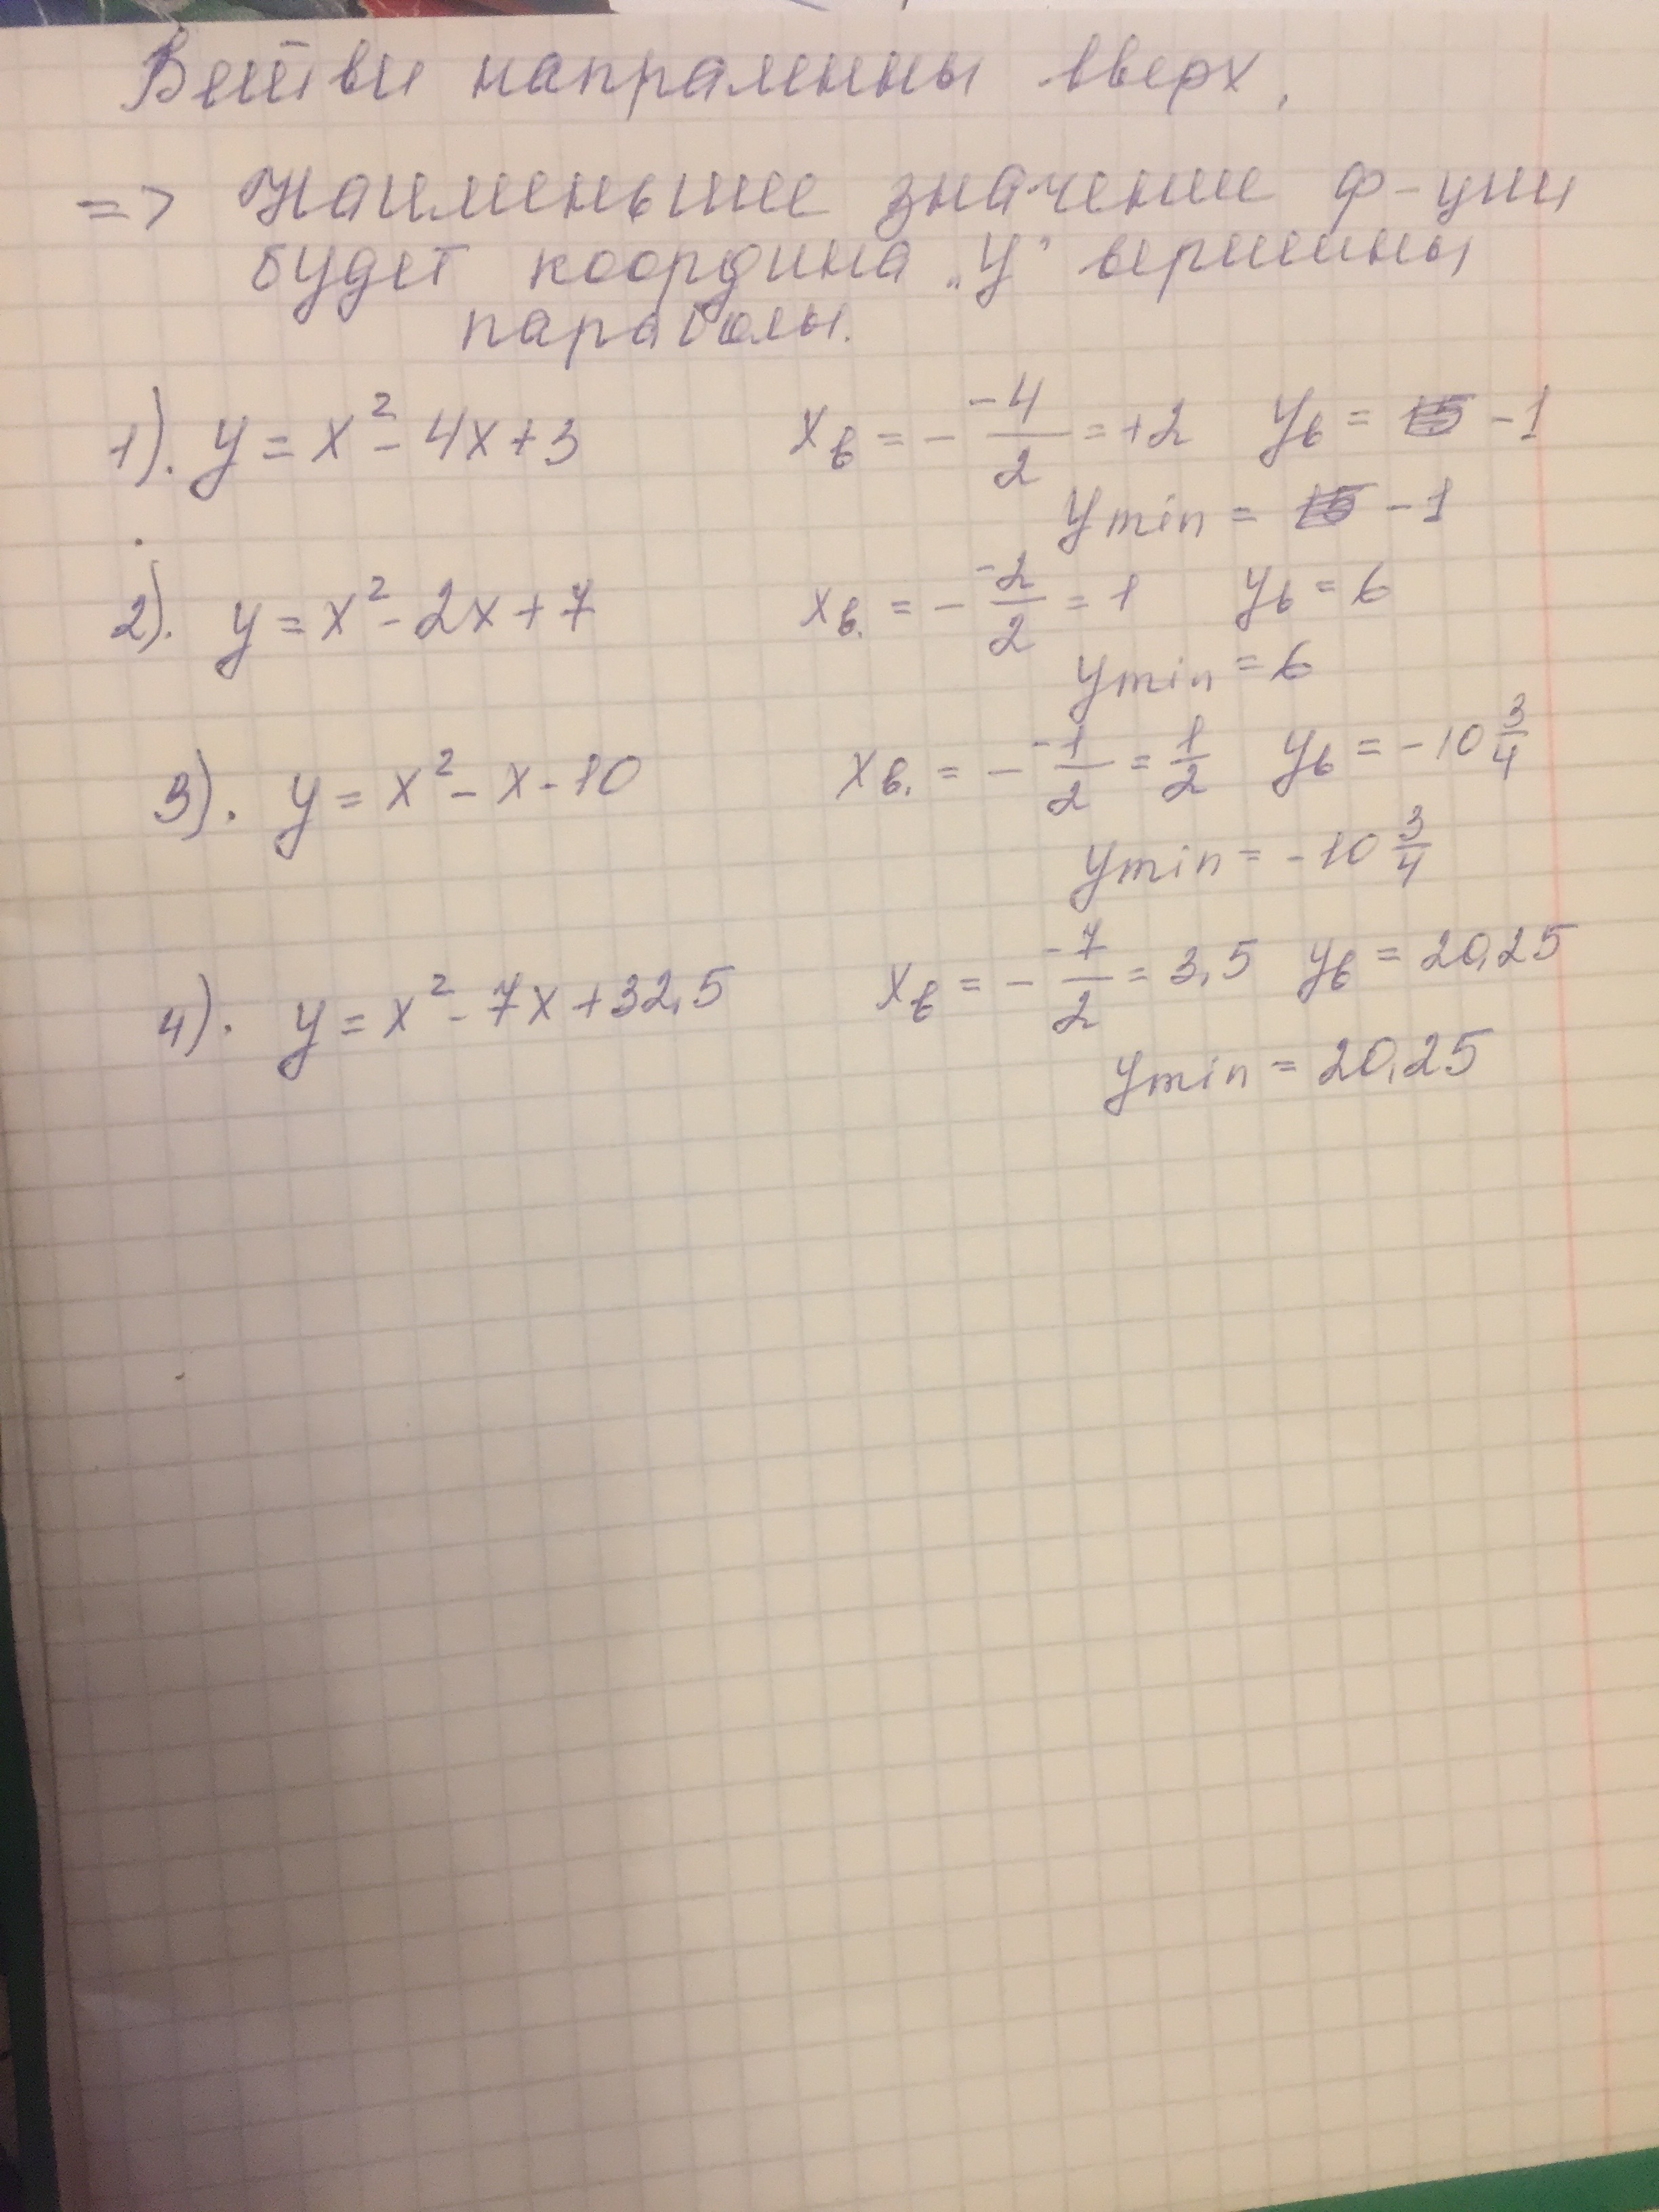 Ветви направленны вверх,
=> Наименьшее значение ф-ции
будет координа „у" вершины
параболы.
1). y = x² - 4x + 3 xв = - -4/2 = +2 yв = -1
ymin = -1
2). y = x² - 2x + 7 xв. = - -2/2 = 1 yв = 6
ymin = 6
3). y = x² - x - 10 xв. = - -1/2 = 1/2 yв = -10 3/4
ymin = -10 3/4
4). y = x² - 7x + 32,5 xв = - -7/2 = 3,5 yв = 20,25
ymin = 20,25